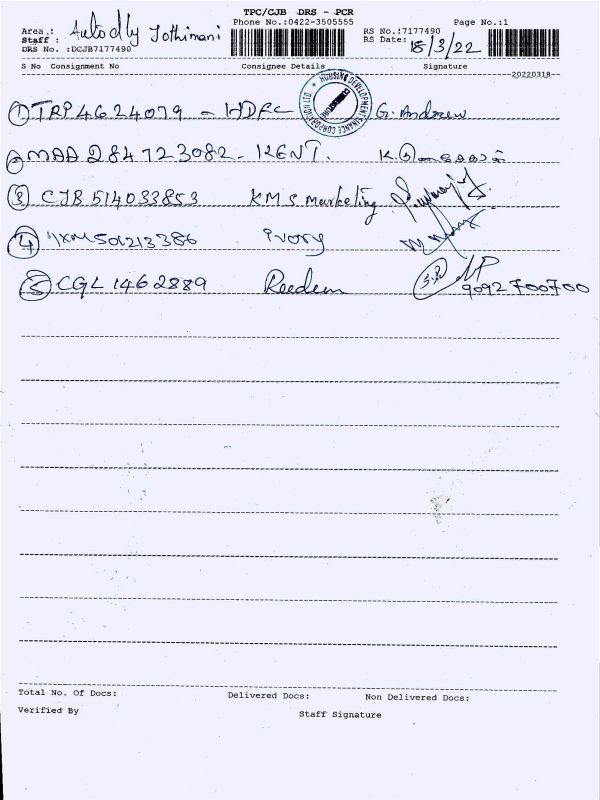 TPC/CJB DRS - PCR
Area : Auto dly Jothimani Phone No.:0422-3505555 Page No.:1
Staff : RS No.:7177490
DRS No. :DCJB7177490 RS Date: 18/3/22
S No Consignment No Consignee Details Signature
20220318
1 TRP4624079 - HDFC G. Andrew
HOUSING DEVELOPMENT FINANCE CORPORATION LTD
2 MAA 284723082 - KENT.
3 CJB 514033853 KMS. marketing
4 501213386 Ivory
5 CGL 1462889 Reedem
9092700700
Total No. Of Docs: Delivered Docs: Non Delivered Docs:
Verified By Staff Signature